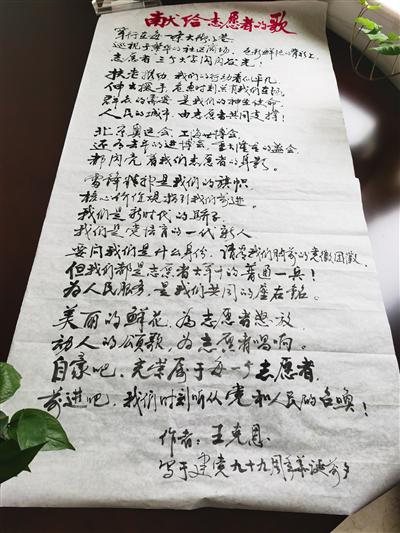 献给志愿者的歌
穿行在每一条大街小巷
巡视于繁华的社区商场，色彩鲜艳的
志愿者三个大字闪闪发光！
扶老携幼，我们的行动看似平凡
伸出援手，危难时刻总有我们在场
群众的需要，是我们的神圣使命
人民的城市，由志愿者共同支撑！
北京奥运会、上海世博会
还有去年的进博会，五大洲的盛会
都闪亮着我们志愿者的身影。
雷锋精神是我们的旗帜
核心价值观指引我们前进。
我们是新时代的骄子
我们是建设者的一代新人
要问我们是什么身份，请看我们胸前的党徽团徽
但我们都是志愿者大军中的普通一兵！
为人民服务，是我们共同的座右铭。
美丽的鲜花，为志愿者怒放
动人的颂歌，为志愿者唱响。
自豪吧，光荣属于每一个志愿者，
前进吧，我们时刻听从党和人民的召唤！
作者：王克恩
写于建党九十九周年华诞前夕